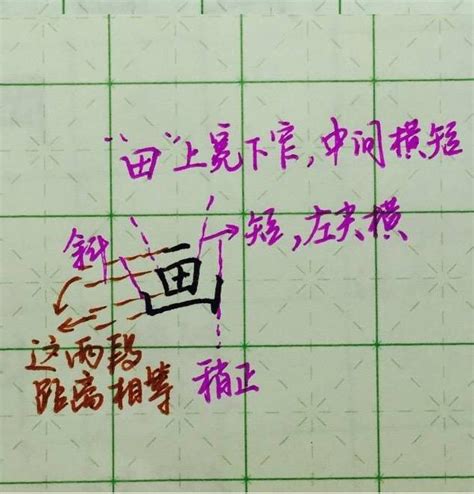 “田”上宽下窄,中间横短
斜
短,左尖横
画
这两段
距离相等
稍正